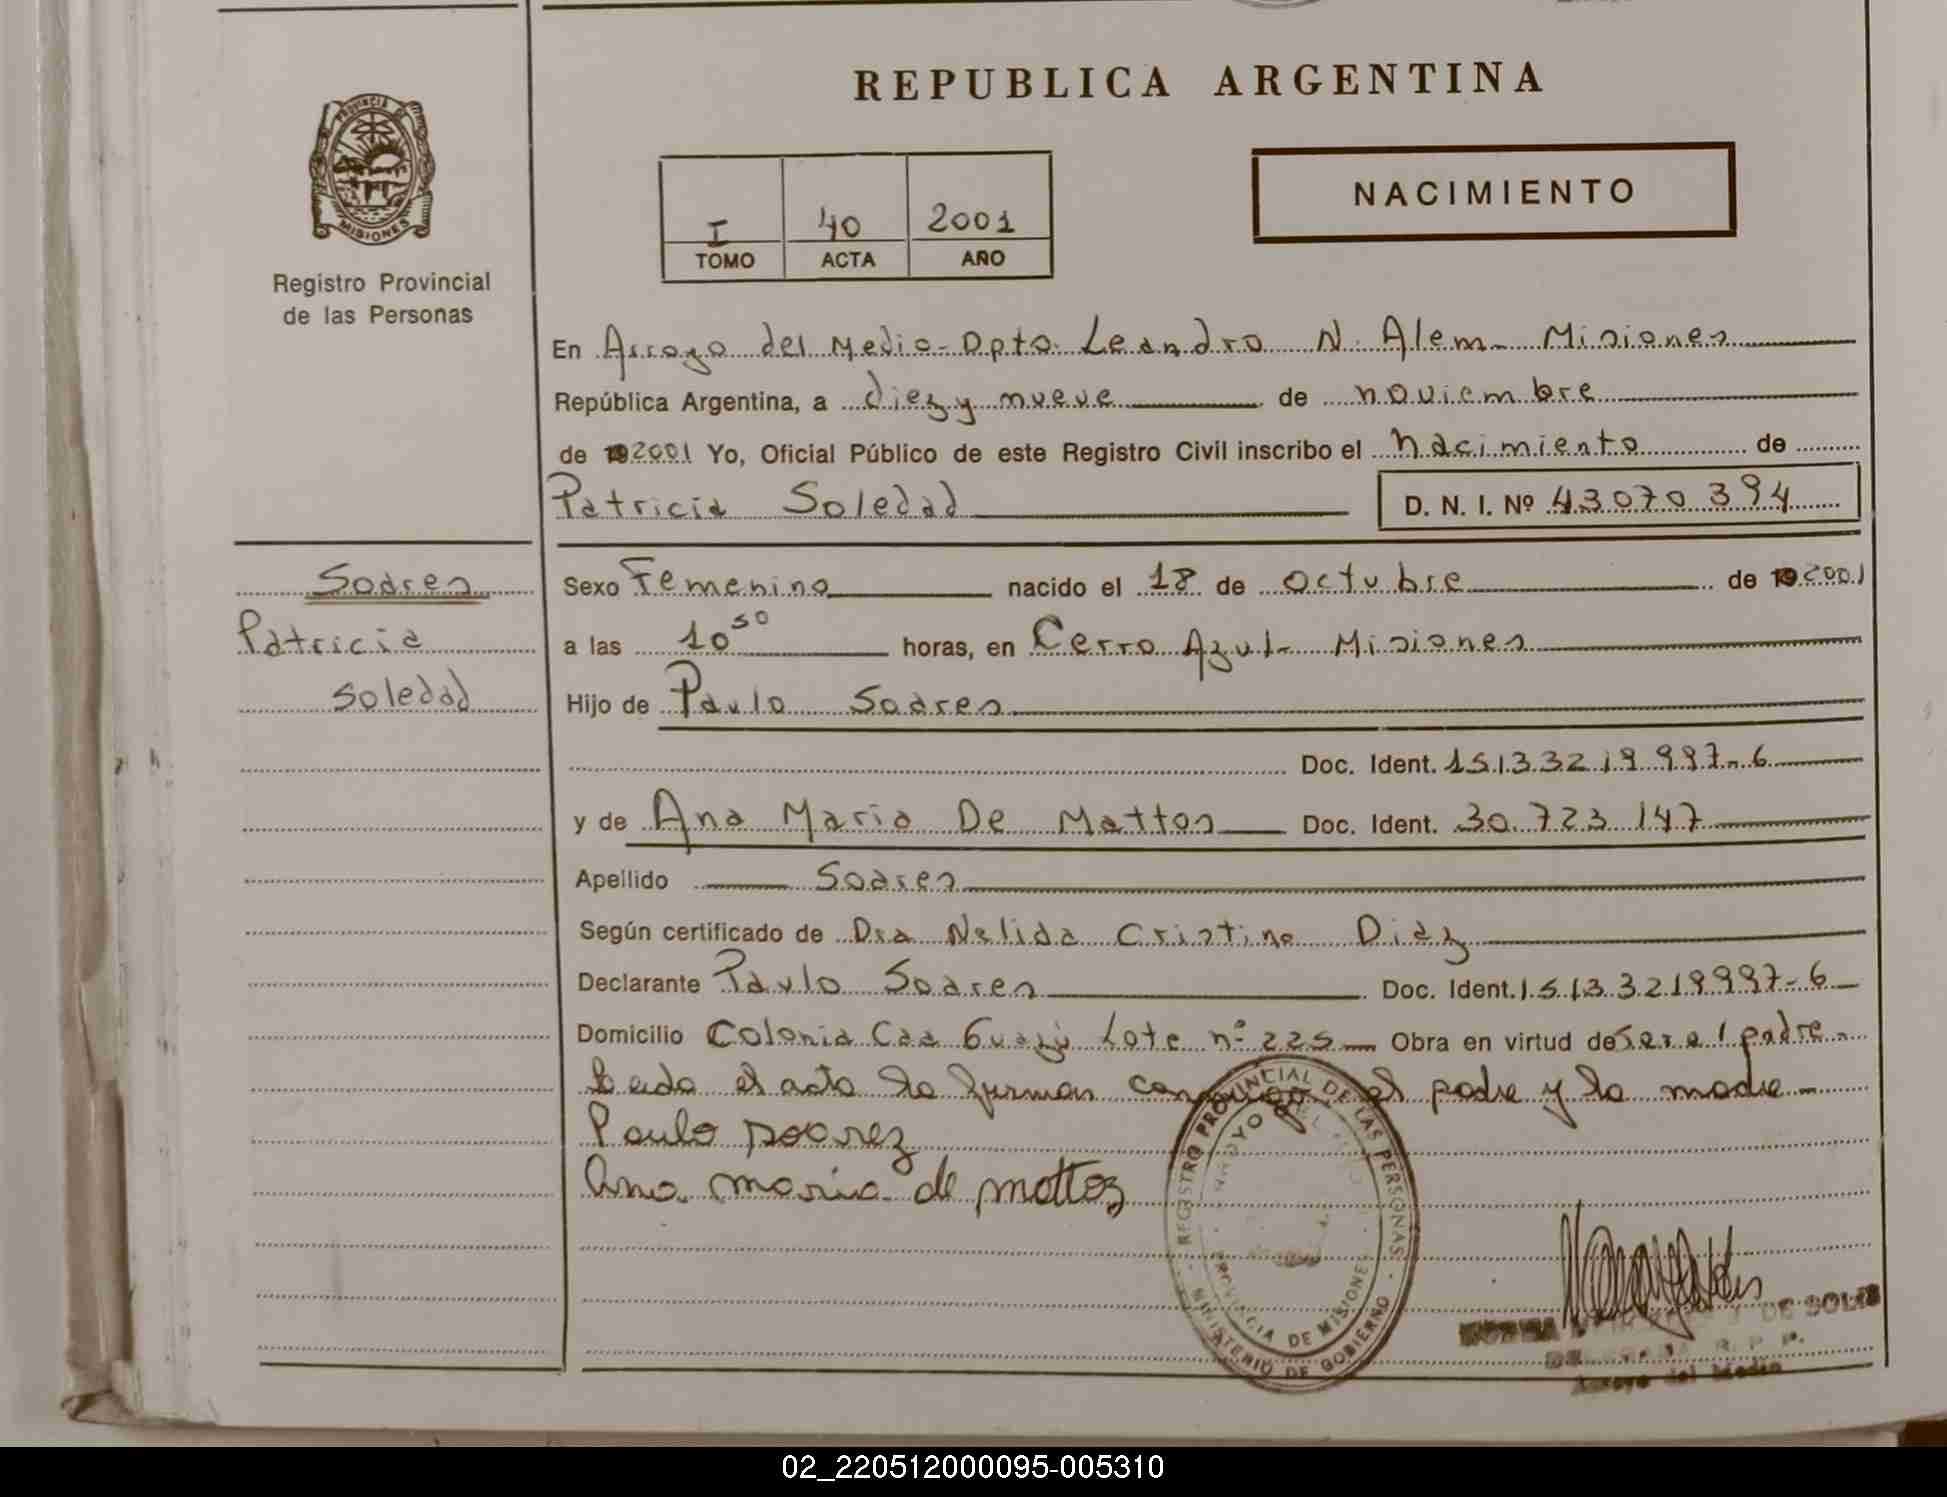 REPUBLICA ARGENTINA
PROVINCIA DE
MISIONES
Registro Provincial
de las Personas
I 40 2001
TOMO ACTA AÑO
NACIMIENTO
En Arroyo del Medio - Dpto. Leandro N. Alem - Misiones
República Argentina, a diez y nueve de noviembre
de 2001 Yo, Oficial Público de este Registro Civil inscribo el nacimiento de
Patricia Soledad
D. N. I. Nº 43070394
Soares
Patricia
Soledad
Sexo Femenino nacido el 18 de octubre de 2001
a las 10 50 horas, en Cerro Azul - Misiones
Hijo de Paulo Soares
Doc. Ident. 15133219997-6
y de Ana Maria De Mattos Doc. Ident. 30.723.147
Apellido Soares
Según certificado de Dra Nelida Cristina Diaz
Declarante Paulo Soares Doc. Ident. 15133219997-6
Domicilio Colonia Caa Guazú Lote nº 225 Obra en virtud de ser el padre
Leida el acta la firman conmigo el padre y la madre
Paulo soarez
Ana maria de mattos
REGISTRO PROVINCIAL DE LAS PERSONAS
MINISTERIO DE GOBIERNO
PROVINCIA DE MISIONES
NORMA DE SOLIS
R. P. P.
Arroyo del Medio
02_220512000095-005310